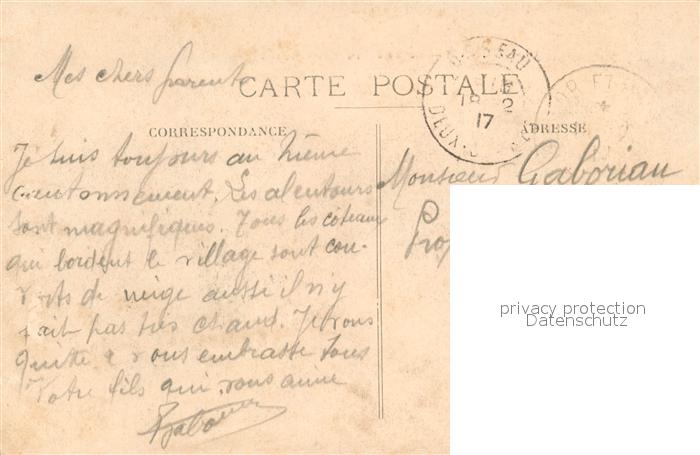 Mes chers parents
CARTE POSTALE
CORRESPONDANCE
ADRESSE
Je suis toujours au même
cantonnement. Les alentours
sont magnifiques. Tous les côteaux
qui bordent le village sont cou-
verts de neige aussi il n'y
fait pas très chaud. Je vous
quitte & vous embrasse tous
Votre fils qui vous aime
Monsieur Gaboriau
18 2
17
privacy protection
Datenschutz